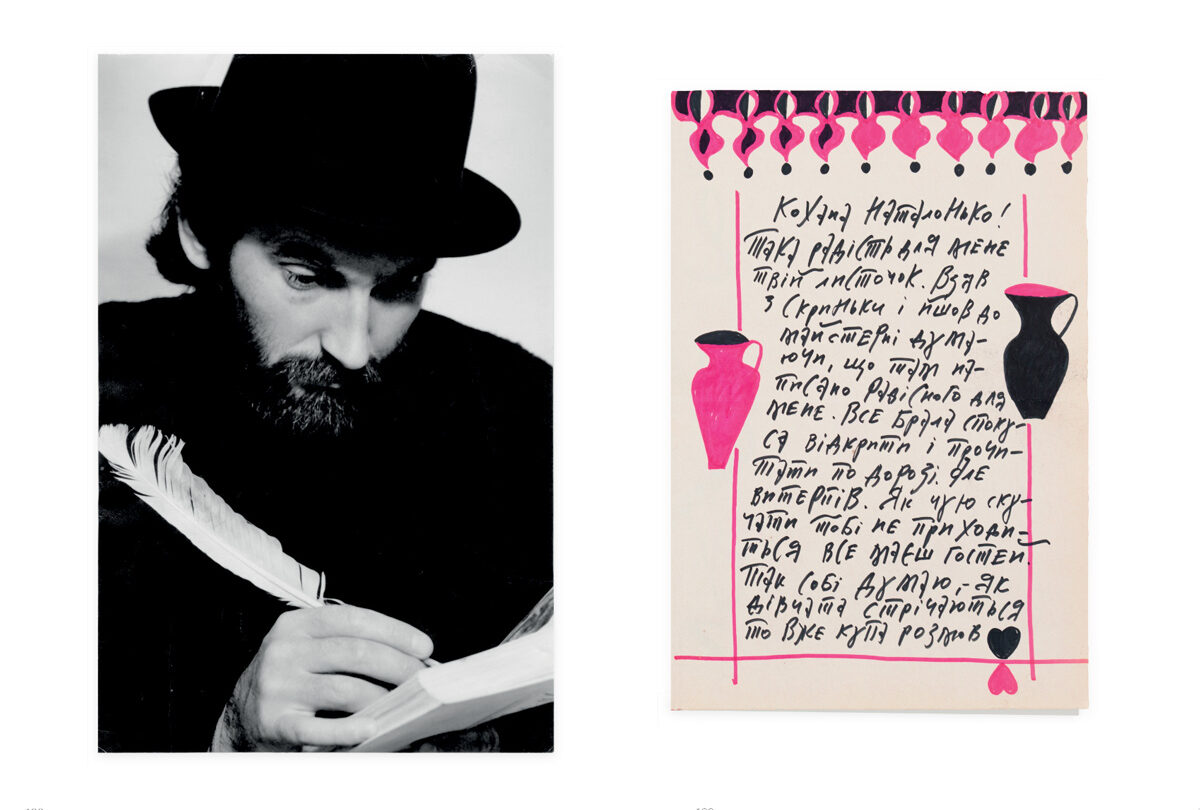 Кохана Наталонько!
Така радість для мене
твій листочок. Взяв
з скриньки і йшов до
майстерні дума-
ючи, що там на-
писано радісного для
мене. Все брала споку-
са відкрити і прочи-
тати по дорозі. Але
витерпів. Як чую ску-
чати тобі не приходи-
ться все маєш гостей.
Так собі думаю,- як
дівчата стрічаються
то вже купа розмов